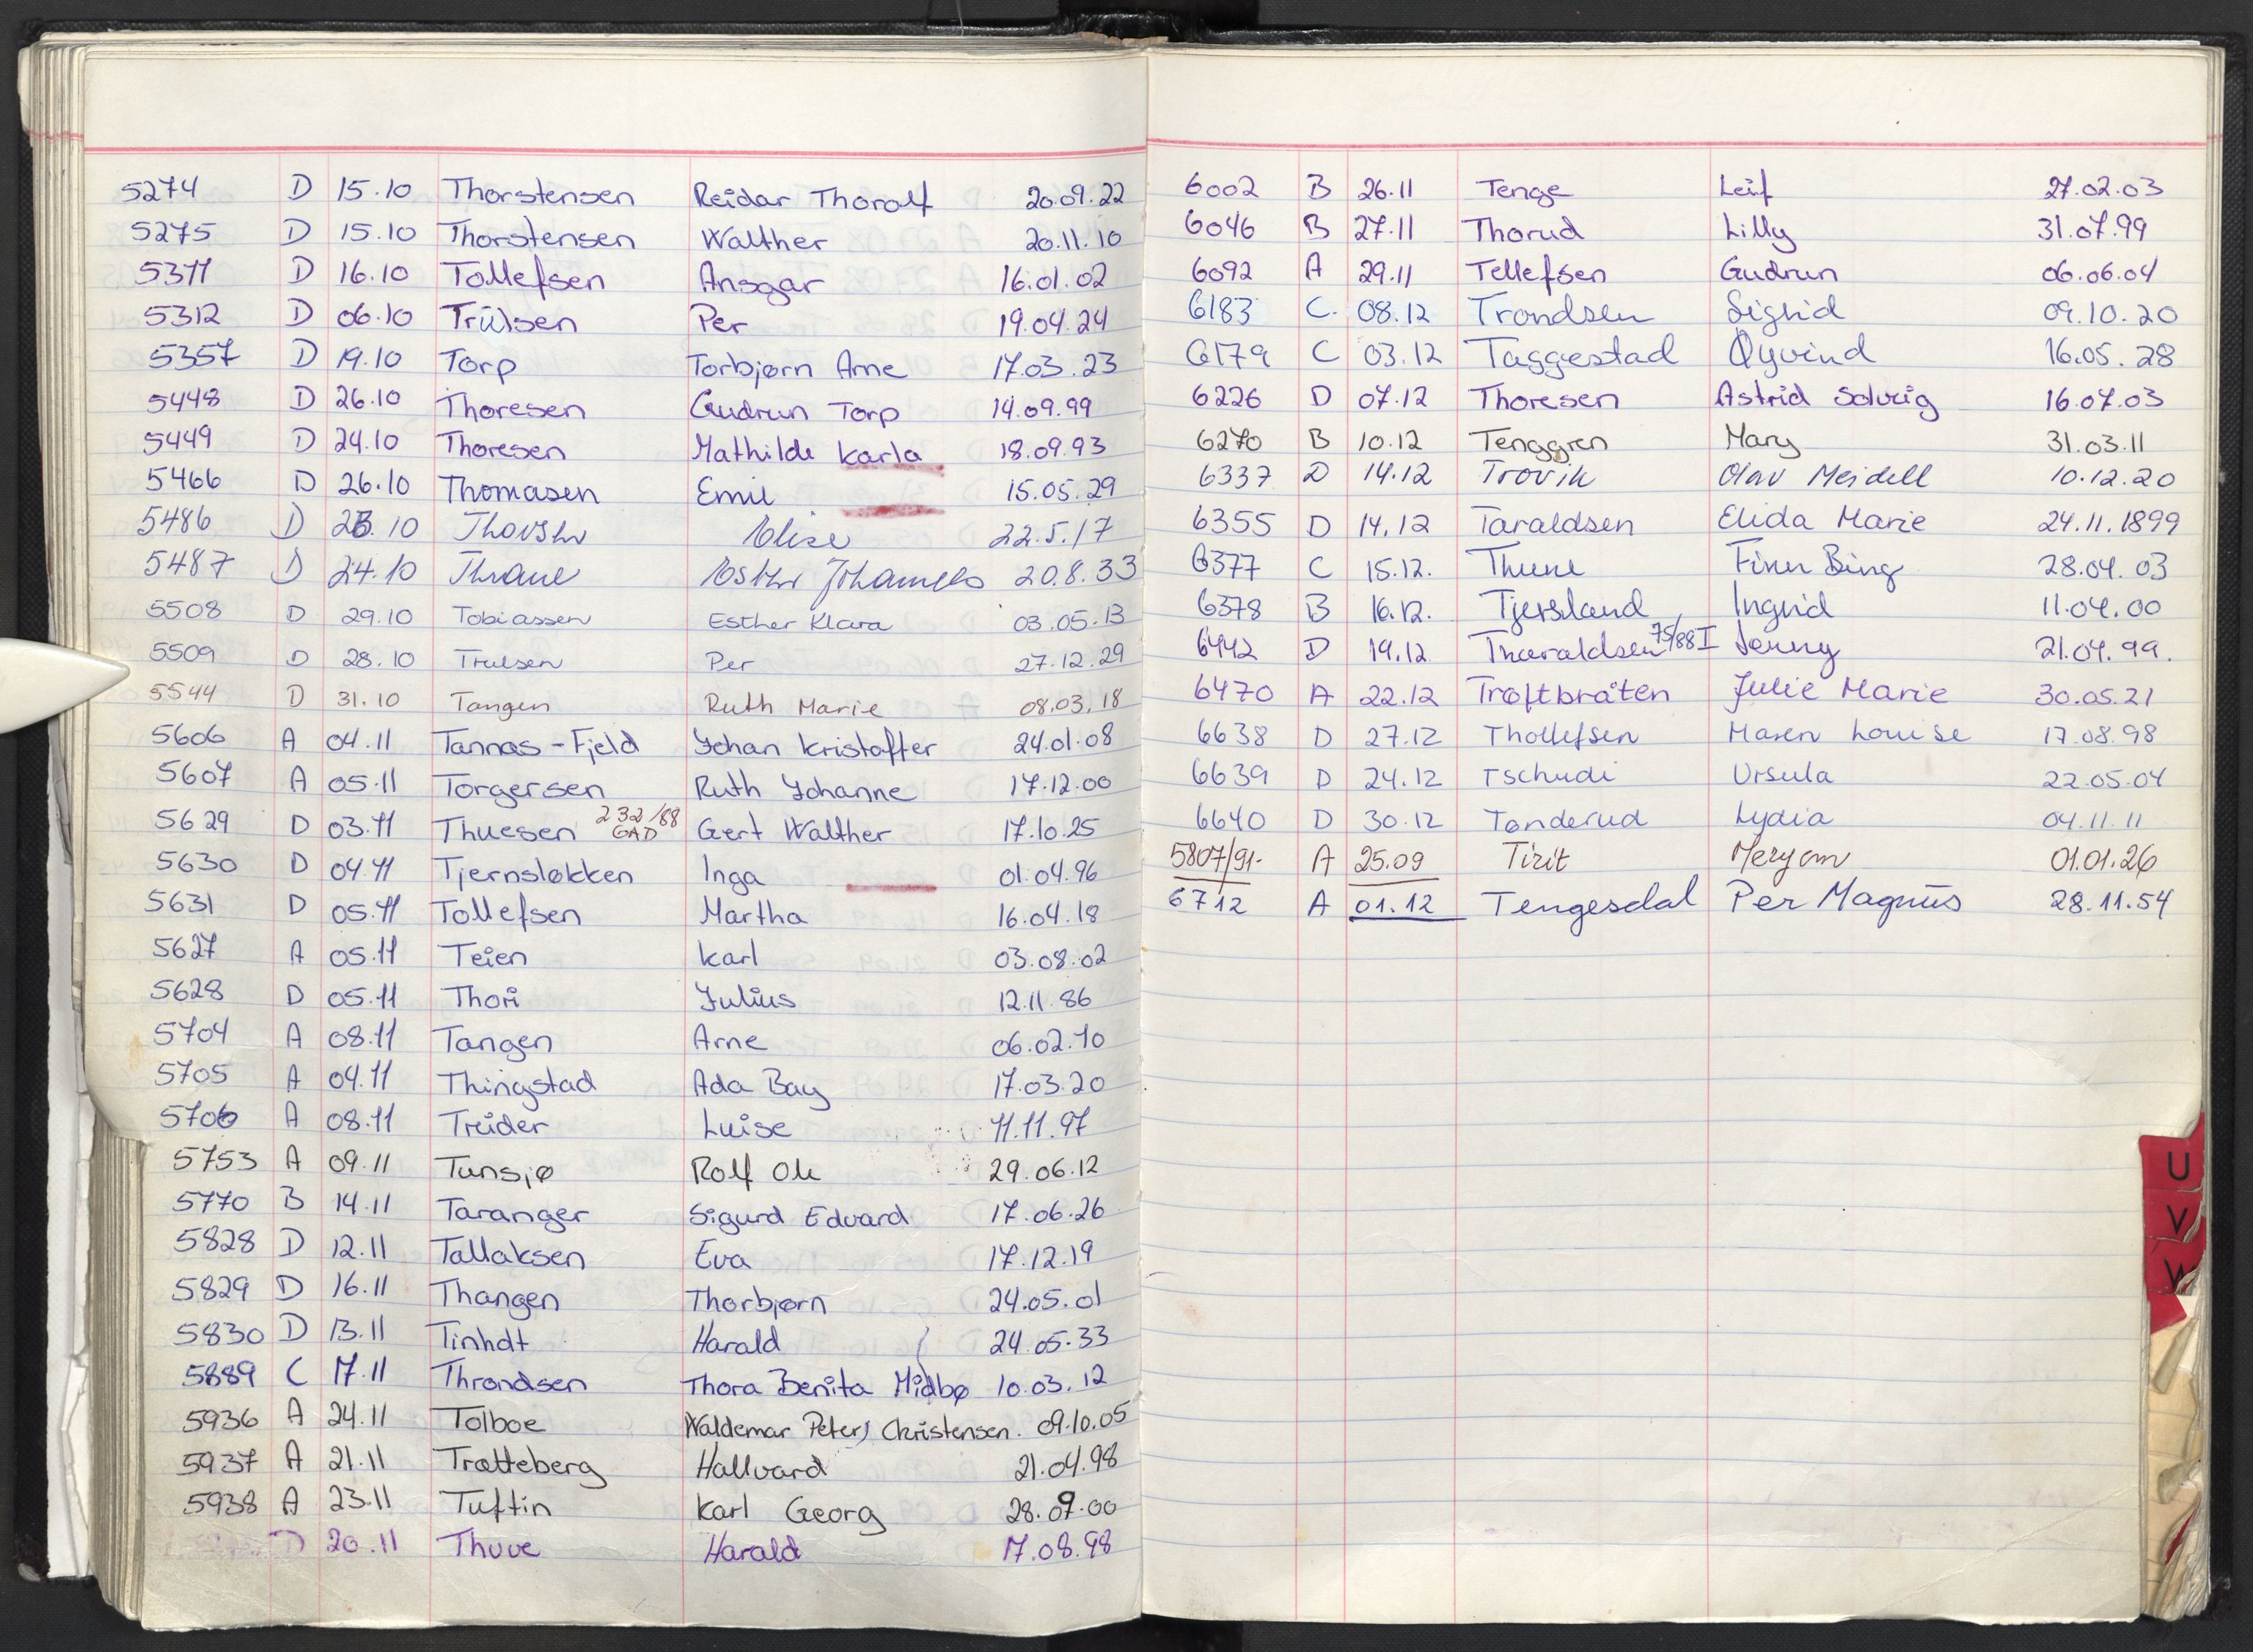 5274 D 15.10 Thorstensen Reidar Thoralf 20.09.22
5275 D 15.10 Thorstensen Walther 20.11.10
5311 D 16.10 Tollefsen Ansgar 16.01.02
5312 D 06.10 Trulsen Per 19.04.24
5357 D 19.10 Torp Torbjørn Arne 17.03.23
5448 D 26.10 Thoresen Gudrun Torp 14.09.99
5449 D 24.10 Thoresen Mathilde Karla 18.09.93
5466 D 26.10 Thomasen Emil 15.05.29
5486 D 10 Elise 22.5.17
5487 D 24.10 Thrane Johannes 20.8.33
5508 D 29.10 Tobiassen Esther Klara 03.05.13
5509 D 28.10 Trulsen Per 27.12.29
5544 D 31.10 Tangen Ruth Marie 08.03.18
5606 A 04.11 Tannas-Fjeld Johan Kristoffer 24.01.08
5607 A 05.11 Torgersen Ruth Johanne 17.12.00
5629 D 03.11 Thuesen 232/88 GAD Gert Walther 17.10.25
5630 D 04.11 Tjernsløkken Inga 01.04.96
5631 D 05.11 Tollefsen Martha 16.04.18
5627 A 05.11 Teien Karl 03.08.02
5628 D 05.11 Thori Julius 12.11.86
5704 A 08.11 Tangen Arne 06.02.10
5705 A 04.11 Thingstad Ada Bay 17.03.20
5706 A 08.11 Treider Luise 11.11.97
5753 A 09.11 Tunsjø Rolf Ole 29.06.12
5770 B 14.11 Taranger Sigurd Edvard 17.06.26
5828 D 12.11 Tallaksen Eva 17.12.19
5829 D 16.11 Thangen Thorbjørn 24.05.01
5830 D 13.11 Tinholt Harald 24.05.33
5889 C 17.11 Throndsen Thora Benita Midbø 10.03.12
5936 A 24.11 Tolboe Waldemar Peter Christensen. 09.10.05
5937 A 21.11 Trætteberg Hallvard 21.04.98
5938 A 23.11 Tuftin Karl Georg 28.07.00
D 20.11 Thuve Harald 17.08.98
6002 B 26.11 Tenge Leif 27.02.03
6046 B 27.11 Thorud Lilly 31.07.99
6092 A 29.11 Tellefsen Gudrun 06.06.04
6183 C. 08.12 Trondsen Sigrid 09.10.20
6179 C 03.12 Taggestad Øyvind 16.05.28
6226 D 07.12 Thoresen Astrid Solveig 16.07.03
6270 B 10.12 Tenggren Mary 31.03.11
6337 D 14.12 Trovik Olav Meidell 10.12.20
6355 D 14.12 Taraldsen Elida Marie 24.11.1899
6377 C 15.12. Thune Finn Bing 28.04.03
6378 B 16.12. Tjersland Ingrid 11.04.00
6442 D 19.12 Tharaldsen 75/88 I Jenny 21.04.99.
6470 A 22.12 Trøftbråten Julie Marie 30.05.21
6638 D 27.12 Thollefsen Maren Louise 17.08.98
6639 D 24.12 Tschudi Ursula 22.05.04
6640 D 30.12 Tønderud Lydia 04.11.11
5807/91- A 25.09 Tizit Meryem 01.01.26
6712 A 01.12 Tengesdal Per Magnus 28.11.54
U
V
W